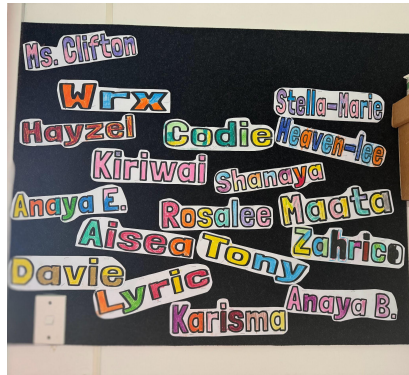 Ms. Clifton
Wrx
Stella-Marie
Hayzel
Codie
Heaven-lee
Kiriwai
Shanaya
Anaya E.
Rosalee
Maata
Aisea
Tony
Zahrico
Davie
Lyric
Karisma
Anaya B.